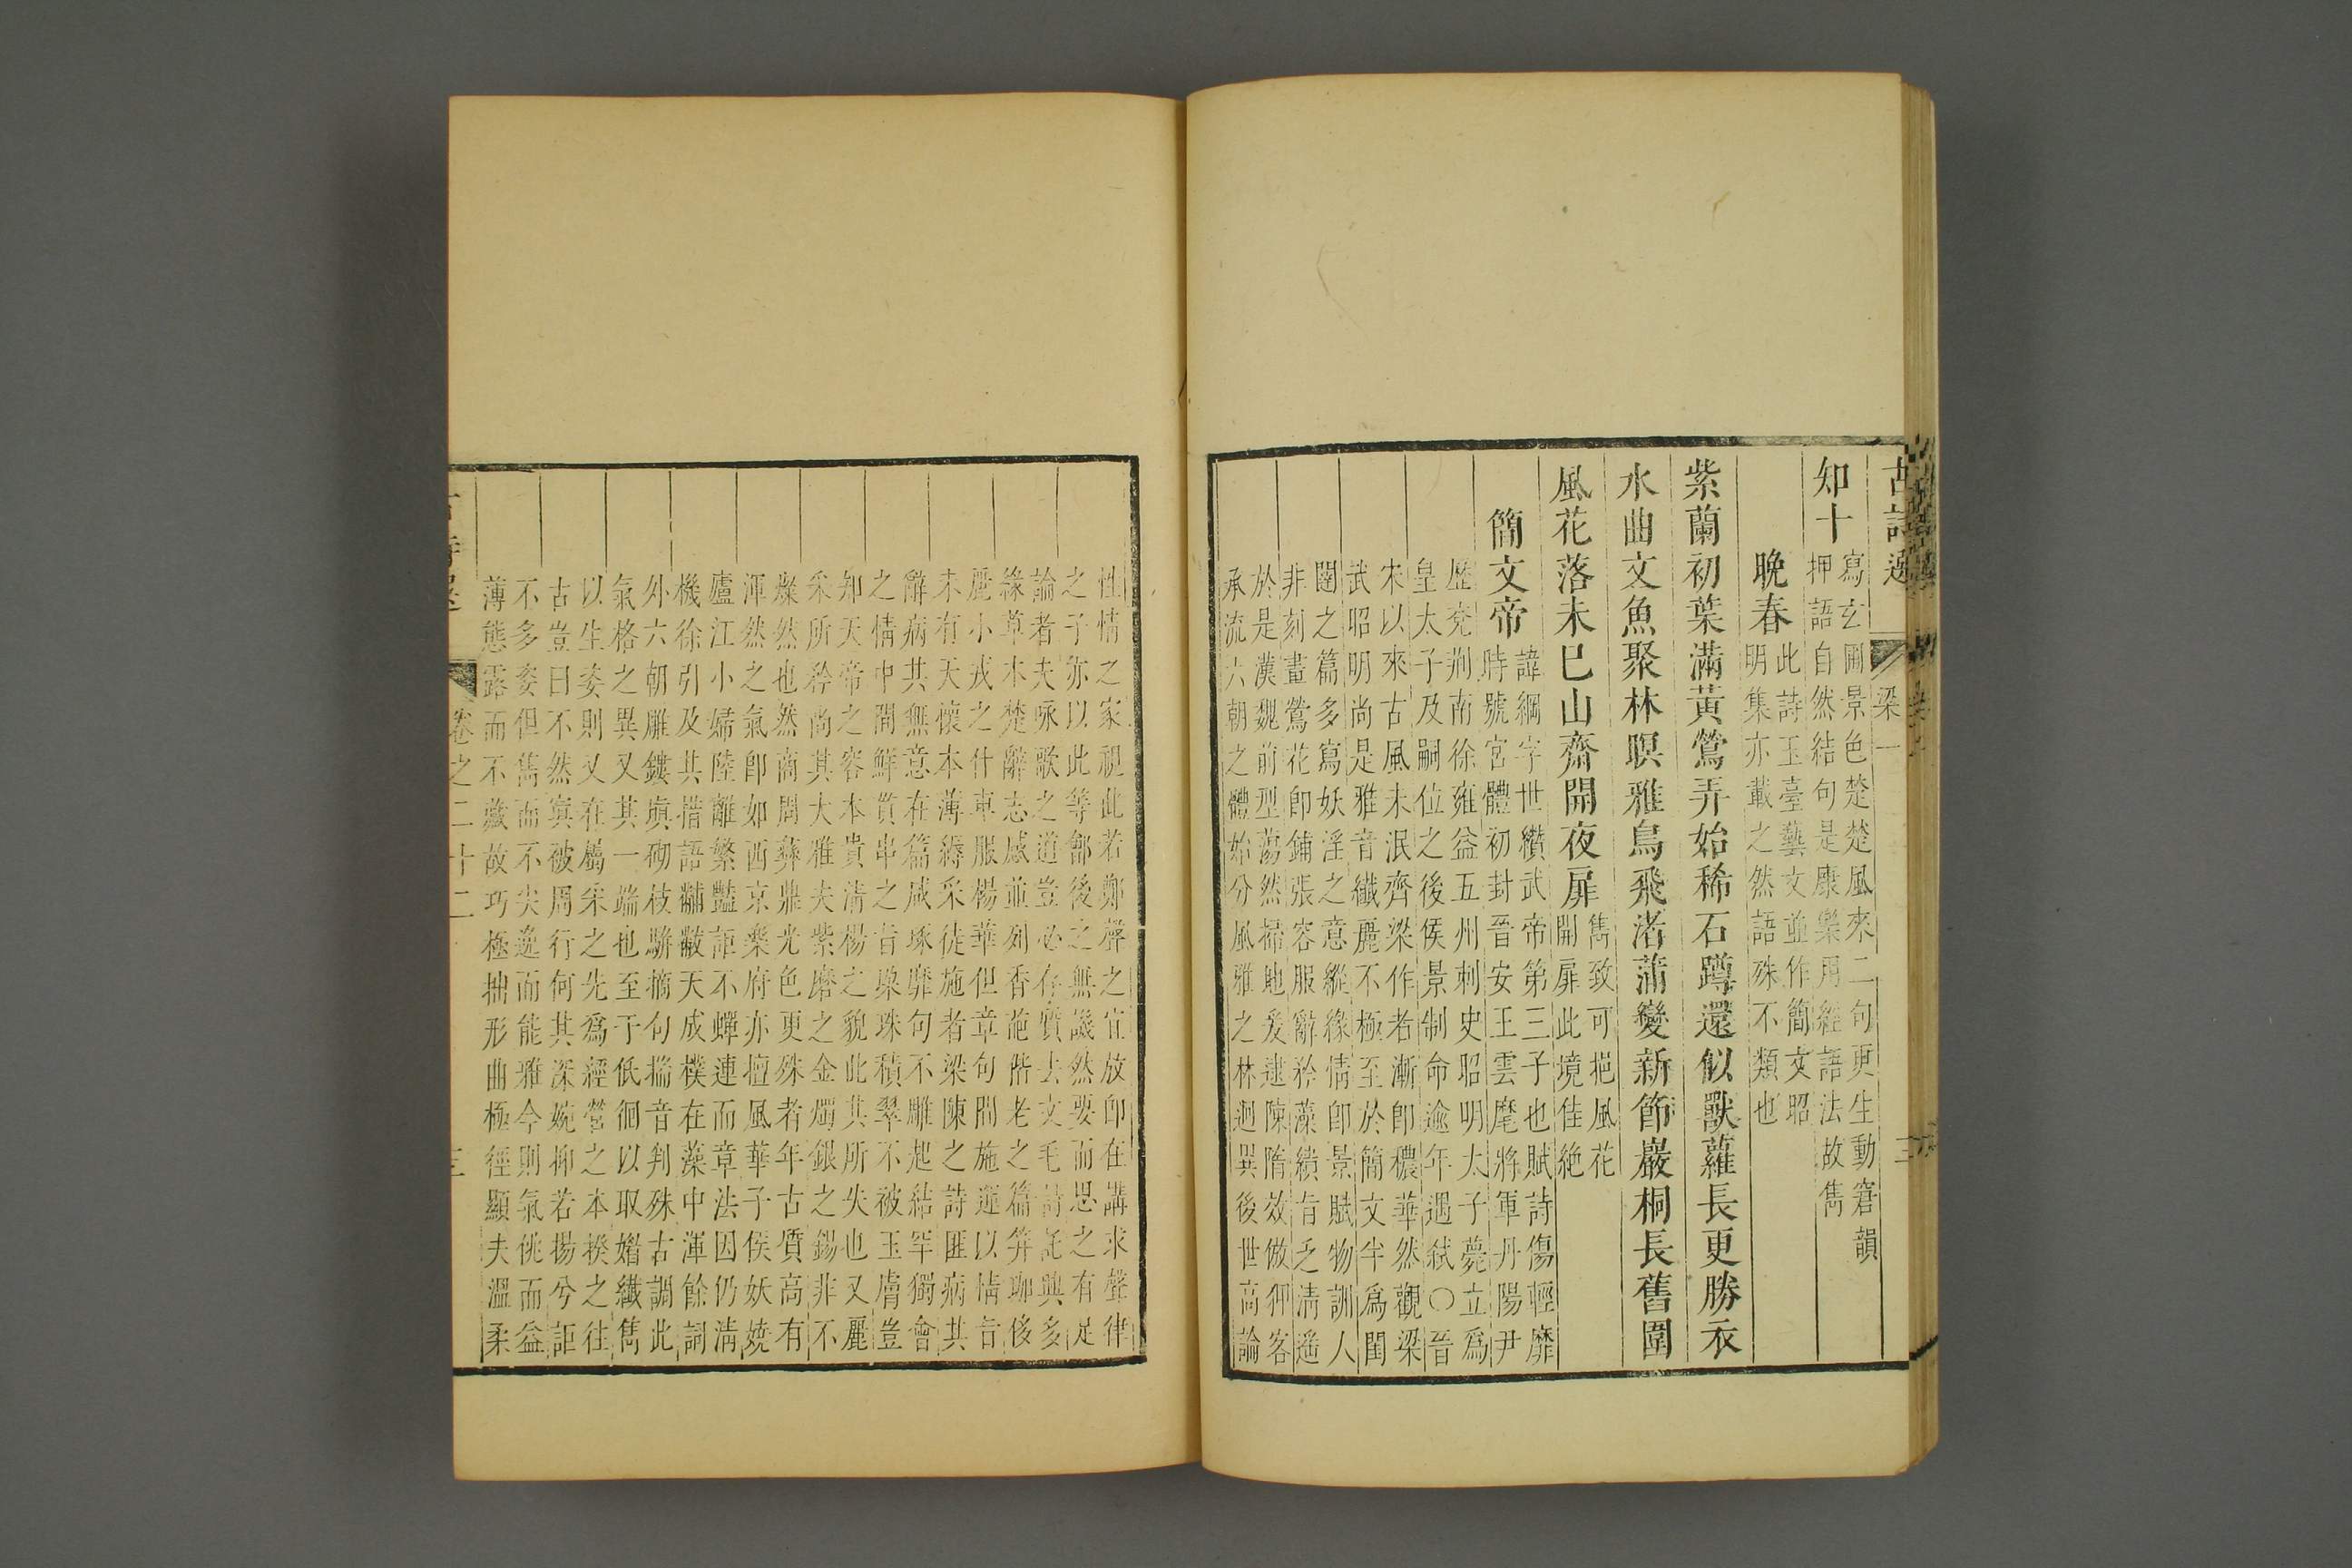 古詩選 梁一 三
知十
寫玄圃景色楚楚風來二句更生動窘韻
押語自然結句是康樂用經語法故雋
晚春
此詩玉臺藝文並作簡文昭
明集亦載之然語殊不類也
紫蘭初葉滿黃鶯弄始稀石蹲還似獸蘿長更勝衣
水曲文魚聚林暝雅鳥飛渚蒲變新節巖桐長舊圍
風花落未已山齋開夜扉
雋致可挹風花
開扉此境佳絶
簡文帝
諱綱字世纘武帝第三子也賦詩傷輕靡
時號宮體初封晉安王雲麾將軍丹陽尹
歷兗荆南徐雍益五州刺史昭明太子薨立爲
皇太子及嗣位之後侯景制命逾年遇弑〇晉
宋以來古風未泯齊梁作者漸卽穠華然觀梁
武昭明尚是雅音纖麗不極至於簡文半爲閨
闥之篇多寫妖淫之意縱緣情卽景賦物訓人
非刻畫鶯花卽鋪張容服辭矜藻繢旨乏清遥
於是漢魏前型蕩然掃地爰逮陳隋效倣狎客
承流六朝之體始分風雅之林迥異後世高論
性情之家視此若鄭聲之宜放卽在講求聲律
之子亦以此等鄶後之無譏然要而思之有足
論者夫咏歌之道豈必存質去文毛詩託興多
緣草木楚辭志感並列香葩階老之篇筓珈侈
麗小戎之什車服楊華但章句間施運以情旨
未有天懷本薄縟采徒施者梁陳之詩匪病其
辭病其無意在篇咸琢靡句不雕起結罕獨會
之情中間鮮貫串之旨㮚珠積翠不被玉膚豈
知天帝之容本貴淸楊之貌此其所失也又麗
采所矜尚其大雅夫紫磨之金燭銀之錫非不
燦然也然商周彝鼎光色更殊者年古質高有
渾然之氣卽如西京樂府亦擅風華子侯妖嬈
廬江小婦陸離繁豔詎不蟬連而章法因仍淸
機徐引及其措語黼黻天成樸在藻中渾餘詞
外六朝雕鏤塡砌枝駢摘句揣音判殊古調此
氣格之異又其一端也至于低徊以取媚纖雋
以生姿則又在屬采之先爲經營之本揆之往
古豈曰不然寘被周行何其深婉抑若揚兮詎
不多姿但雋而不尖逸而能雅今則氣佻而益
薄態露而不藏故巧極拙形曲極徑顯夫溫柔
卷之二十二 三